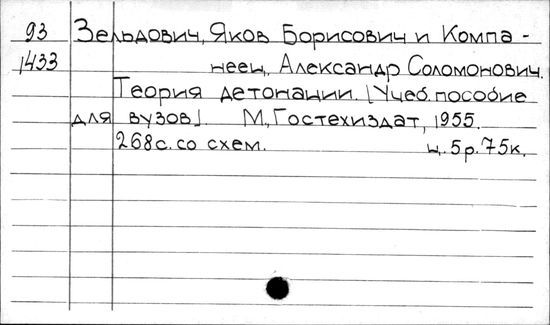 93 Зельдович, Яков Борисович и Компа -
1433 неец, Александр Соломонович.
Теория детонации. [Учеб. пособие
для вузов] М., Гостехиздат, 1955.
268с. со схем. ц. 5р. 75к.